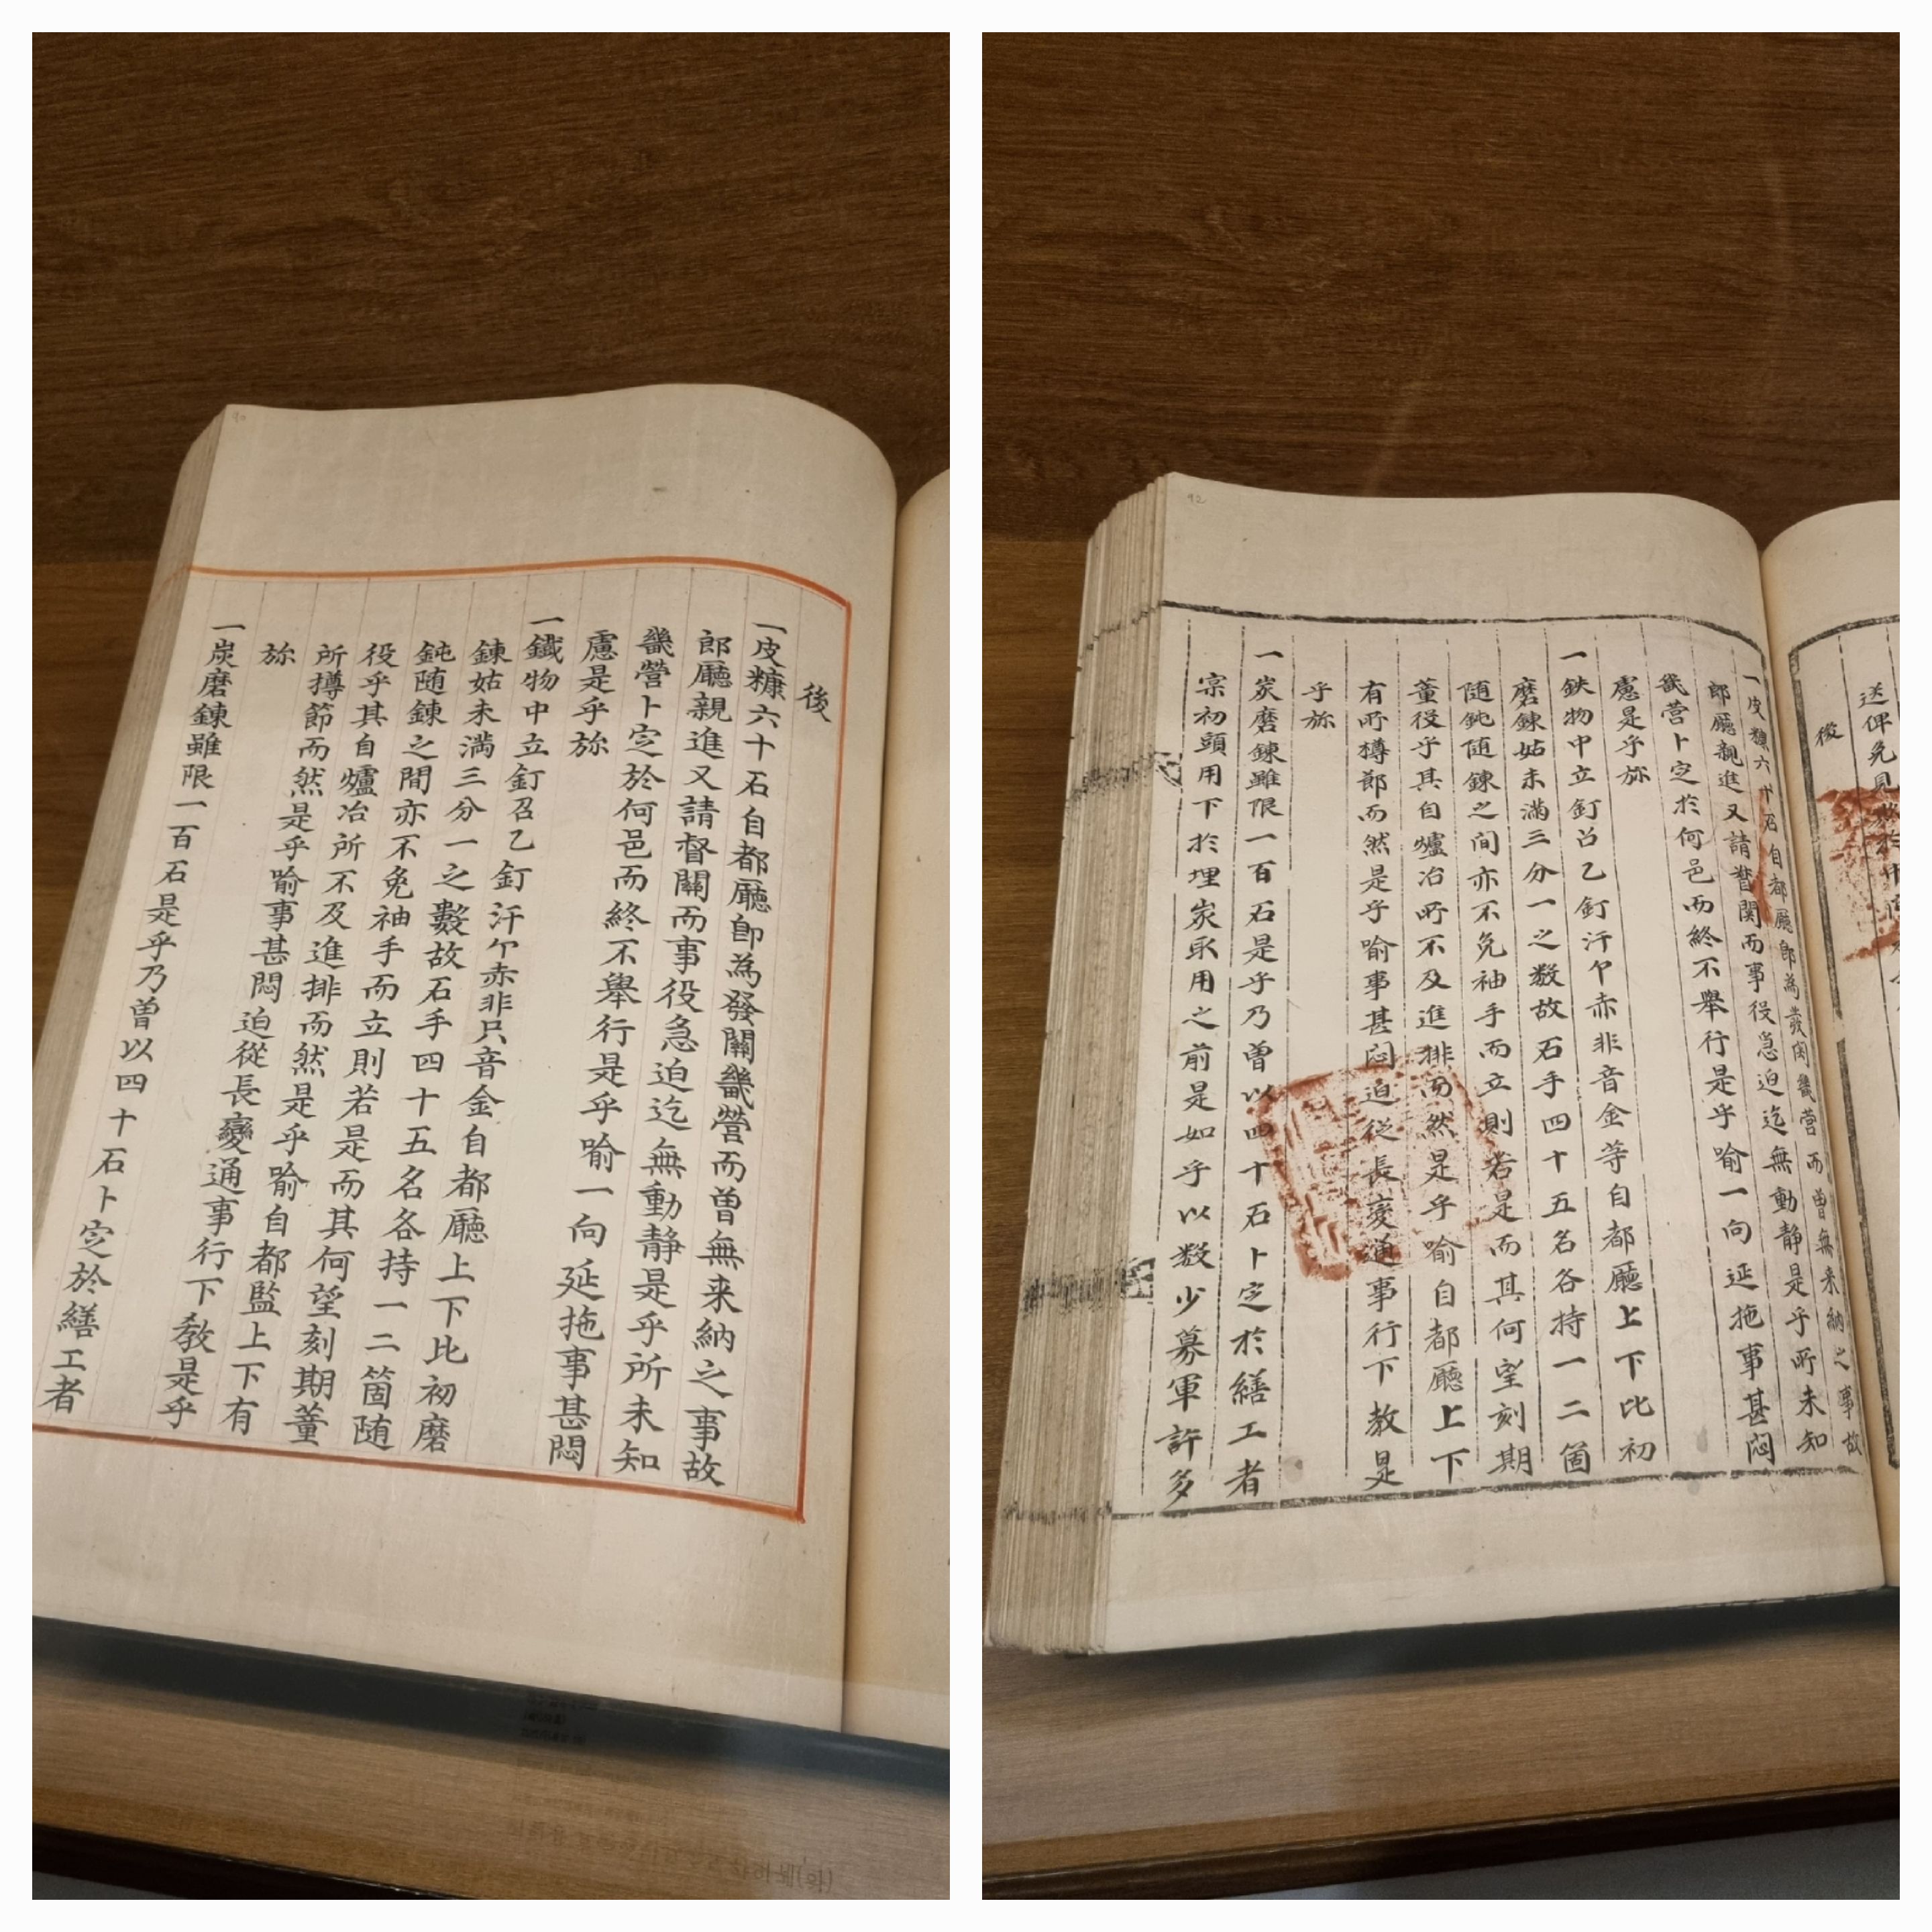 後
一皮糠六十石自都廳卽為發關畿營而曾無来納之事故
郎廳親進又請督關而事役急迫迄無動静是乎所未知
畿營卜定於何邑而終不舉行是乎喻一向延拖事甚悶
慮是乎旀
一鐵物中立釘召乙釘汗亇赤非只音金自都廳上下比初磨
鍊姑未滿三分一之數故石手四十五名各持一二箇随
鈍随鍊之間亦不免袖手而立則若是而其何望刻期董
役乎其自爐冶所不及進排而然是乎喻自都監上下有
所撙節而然是乎喻事甚悶迫從長變通事行下教是乎
旀
一炭磨鍊雖限一百石是乎乃曾以四十石卜定於繕工者
送俾免見
後
一皮糠六十石自都廳卽為發関畿营而曾無来納之事故
郎廳親進又請督関而事役急迫迄無動静是乎所未知
畿营卜定於何邑而終不舉行是乎喻一向延拖事甚闷
慮是乎旀
一鉄物中立釘召乙釘汗亇赤非音金等自都廳上下比初
磨鍊姑未满三分一之数故石手四十五名各持一二箇
随鈍随鍊之间亦不免袖手而立則若是而其何望刻期
董役乎其自爐冶所不及進排而然是乎喻自都廳上下
有所撙節而然是乎喻事甚闷迫従長変通事行下教是
乎旀
一炭磨鍊雖限一百石是乎乃曾以四十石卜定於繕工者
宗初頭用下於埋炭取用之前是如乎以数少募軍許多